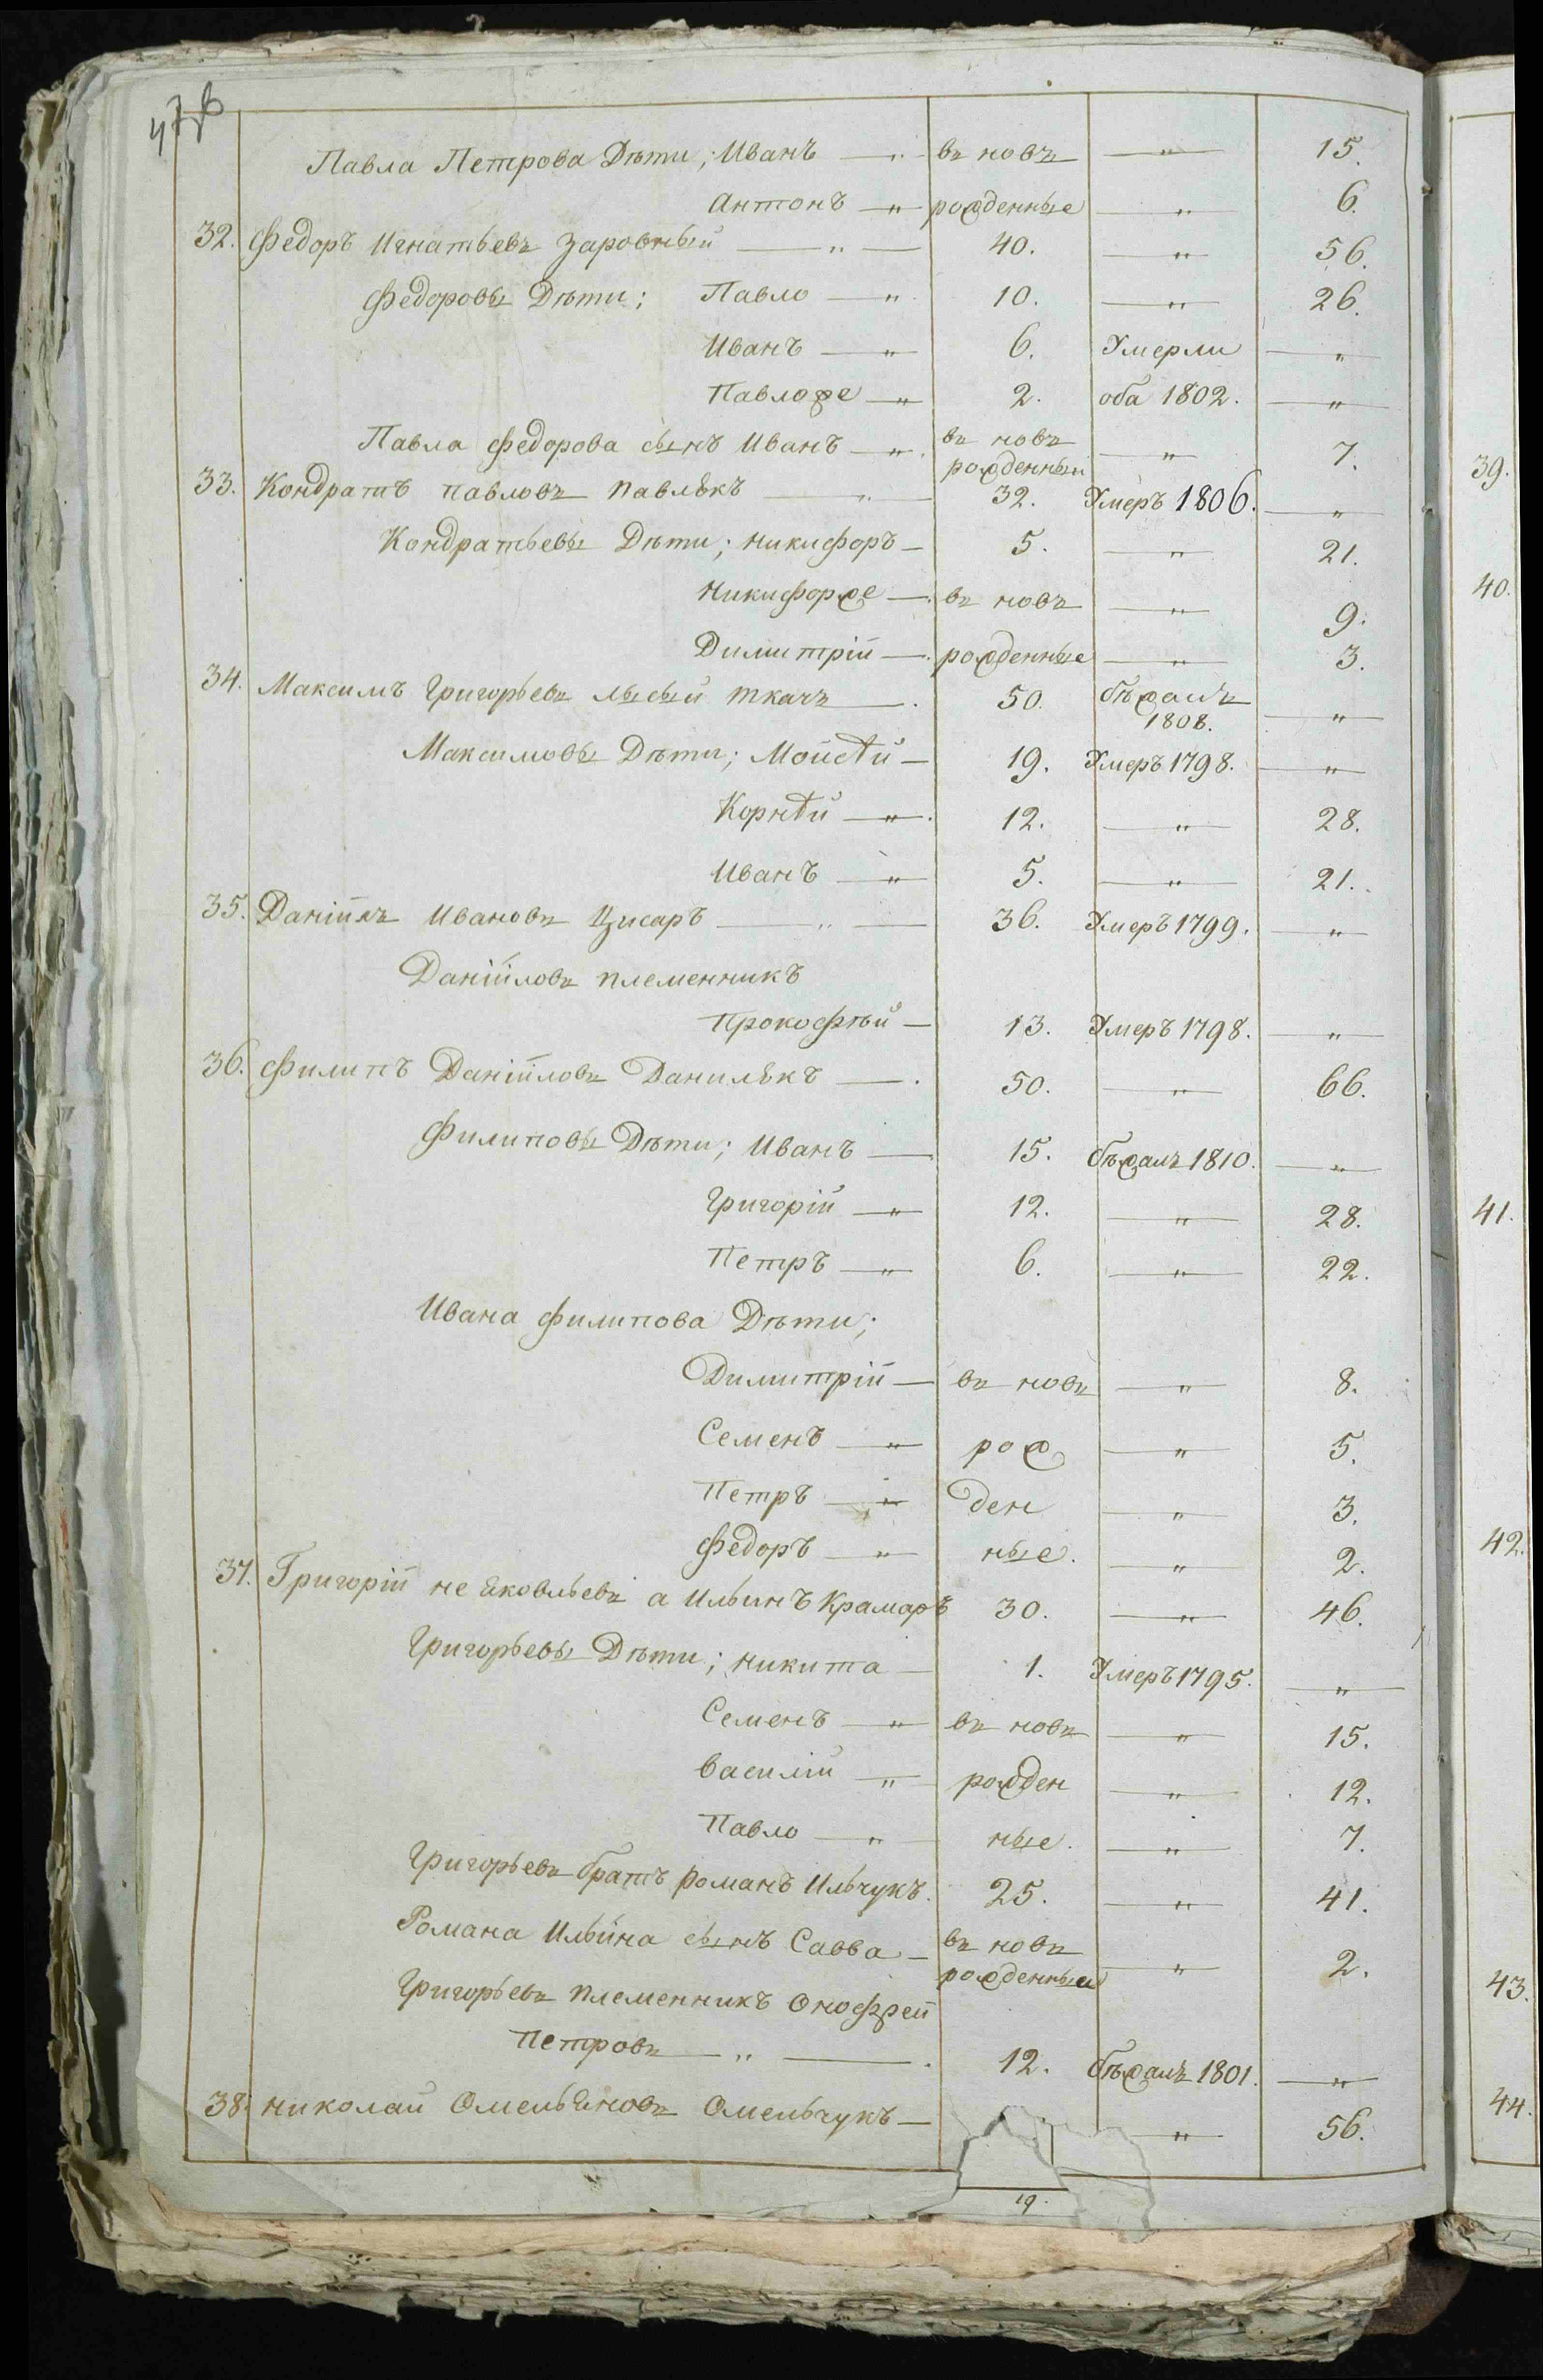 Павла Петрова Дѣти; Иванъ — " въ новъ — " — 15.
Антонъ — " рожденные — " — 6.
32. Федоръ Игнатьевъ Заровный — " — 40. — " — 56.
Федоровы Дѣти; Павло — " 10. — " — 26.
Иванъ — " 6. Умерли — " —
Павло же — " 2. оба 1802. — " —
Павла Федорова сынъ Иванъ — " въ новъ рожденный — " — 7.
33. Кондратъ Павловъ Павлюкъ — " — 32. Умеръ 1806. — " —
Кондратьевы Дѣти; Никифоръ — 5. — " — 21.
Никифор же — въ новъ — " — 9.
Димитрій — рожденные — " — 3.
34. Максимъ Григорьевъ лысый ткачъ — 50. бѣжалъ 1808. — " —
Максимовы Дѣти; Мойсѣй — 19. Умеръ 1798. — " —
Корнѣй — " 12. — " — 28.
Иванъ — " 5. — " — 21.
35. Даніилъ Ивановъ Цисаръ — " — 36. Умеръ 1799. — " —
Даніиловъ племенникъ
Прокофѣй — 13. Умеръ 1798. — " —
36. Филипъ Даніиловъ Данилюкъ — 50. — " — 66.
Филиповы Дѣти; Иванъ — 15. бѣжалъ 1810. — " —
Григорій — " 12. — " — 28.
Петръ — " 6. — " — 22.
Ивана Филипова Дѣти;
Димитрій — въ новъ — " — 8.
Семенъ — " рож — " — 5.
Петръ — " ден — " — 3.
Федоръ — " ные. — " — 2.
37. Григорій не Яковльевъ а Ильинъ Крамаръ 30. — " — 46.
Григорьевы Дѣти; Никита — 1. Умеръ 1795. — " —
Семенъ — " въ новъ — " — 15.
Василій — " рожден — " — 12.
Павло — " ные. — " — 7.
Григорьевъ братъ Романъ Ильчукъ. 25. — " — 41.
Романа Ильина сынъ Савва — въ новъ рожденный — " — 2.
Григорьевъ племенникъ Онофрей
Петровъ — " — 12. бѣжалъ 1801. — " —
38. Николай Омельяновъ Омельчукъ — — " — 56.
19.
39.
40.
41.
42.
43.
44.